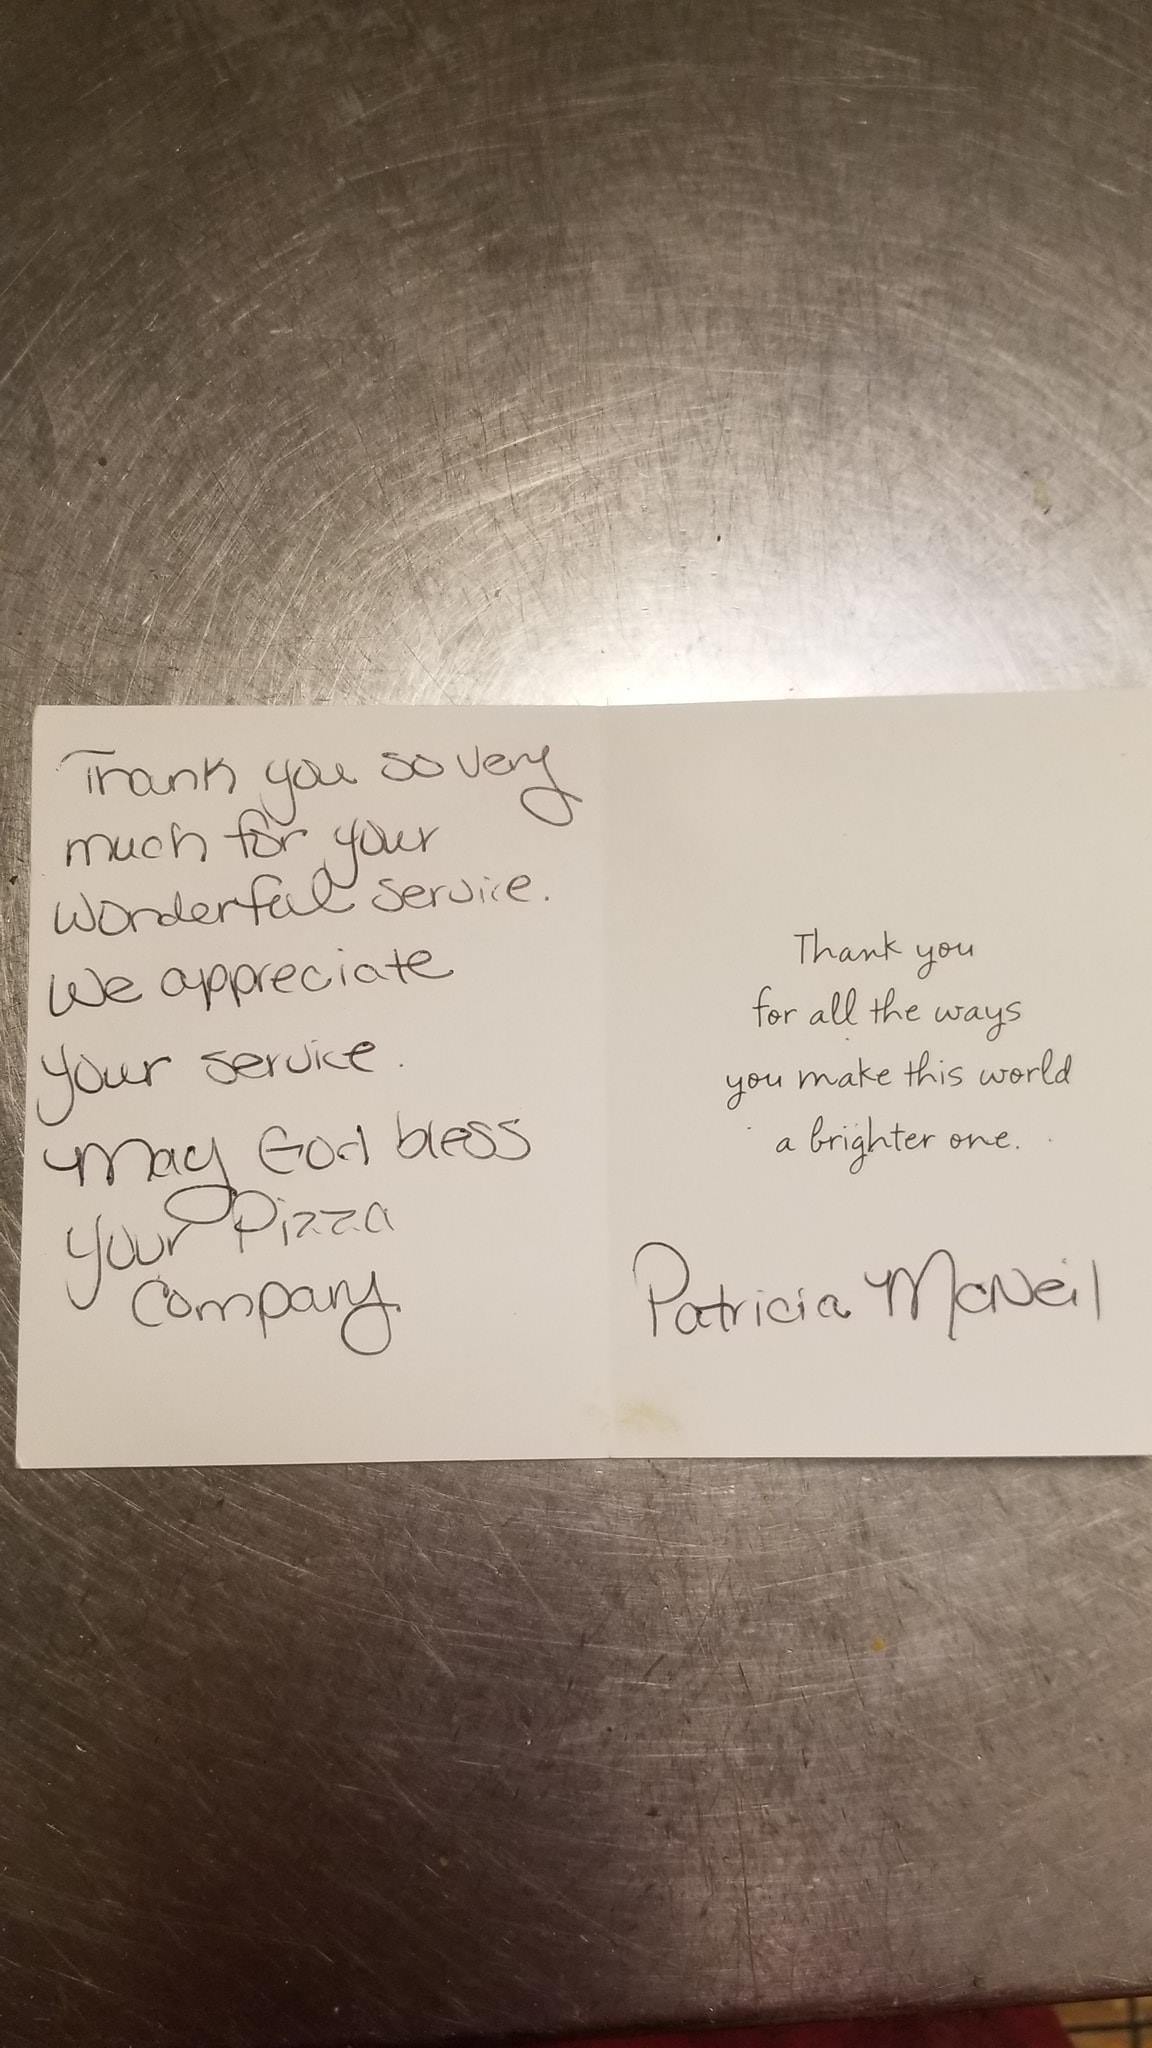 Thank you so very
much for your
wonderful service.
We appreciate
your service.
May God bless
your Pizza
Company.
Thank you
for all the ways
you make this world
a brighter one.
Patricia McNeil